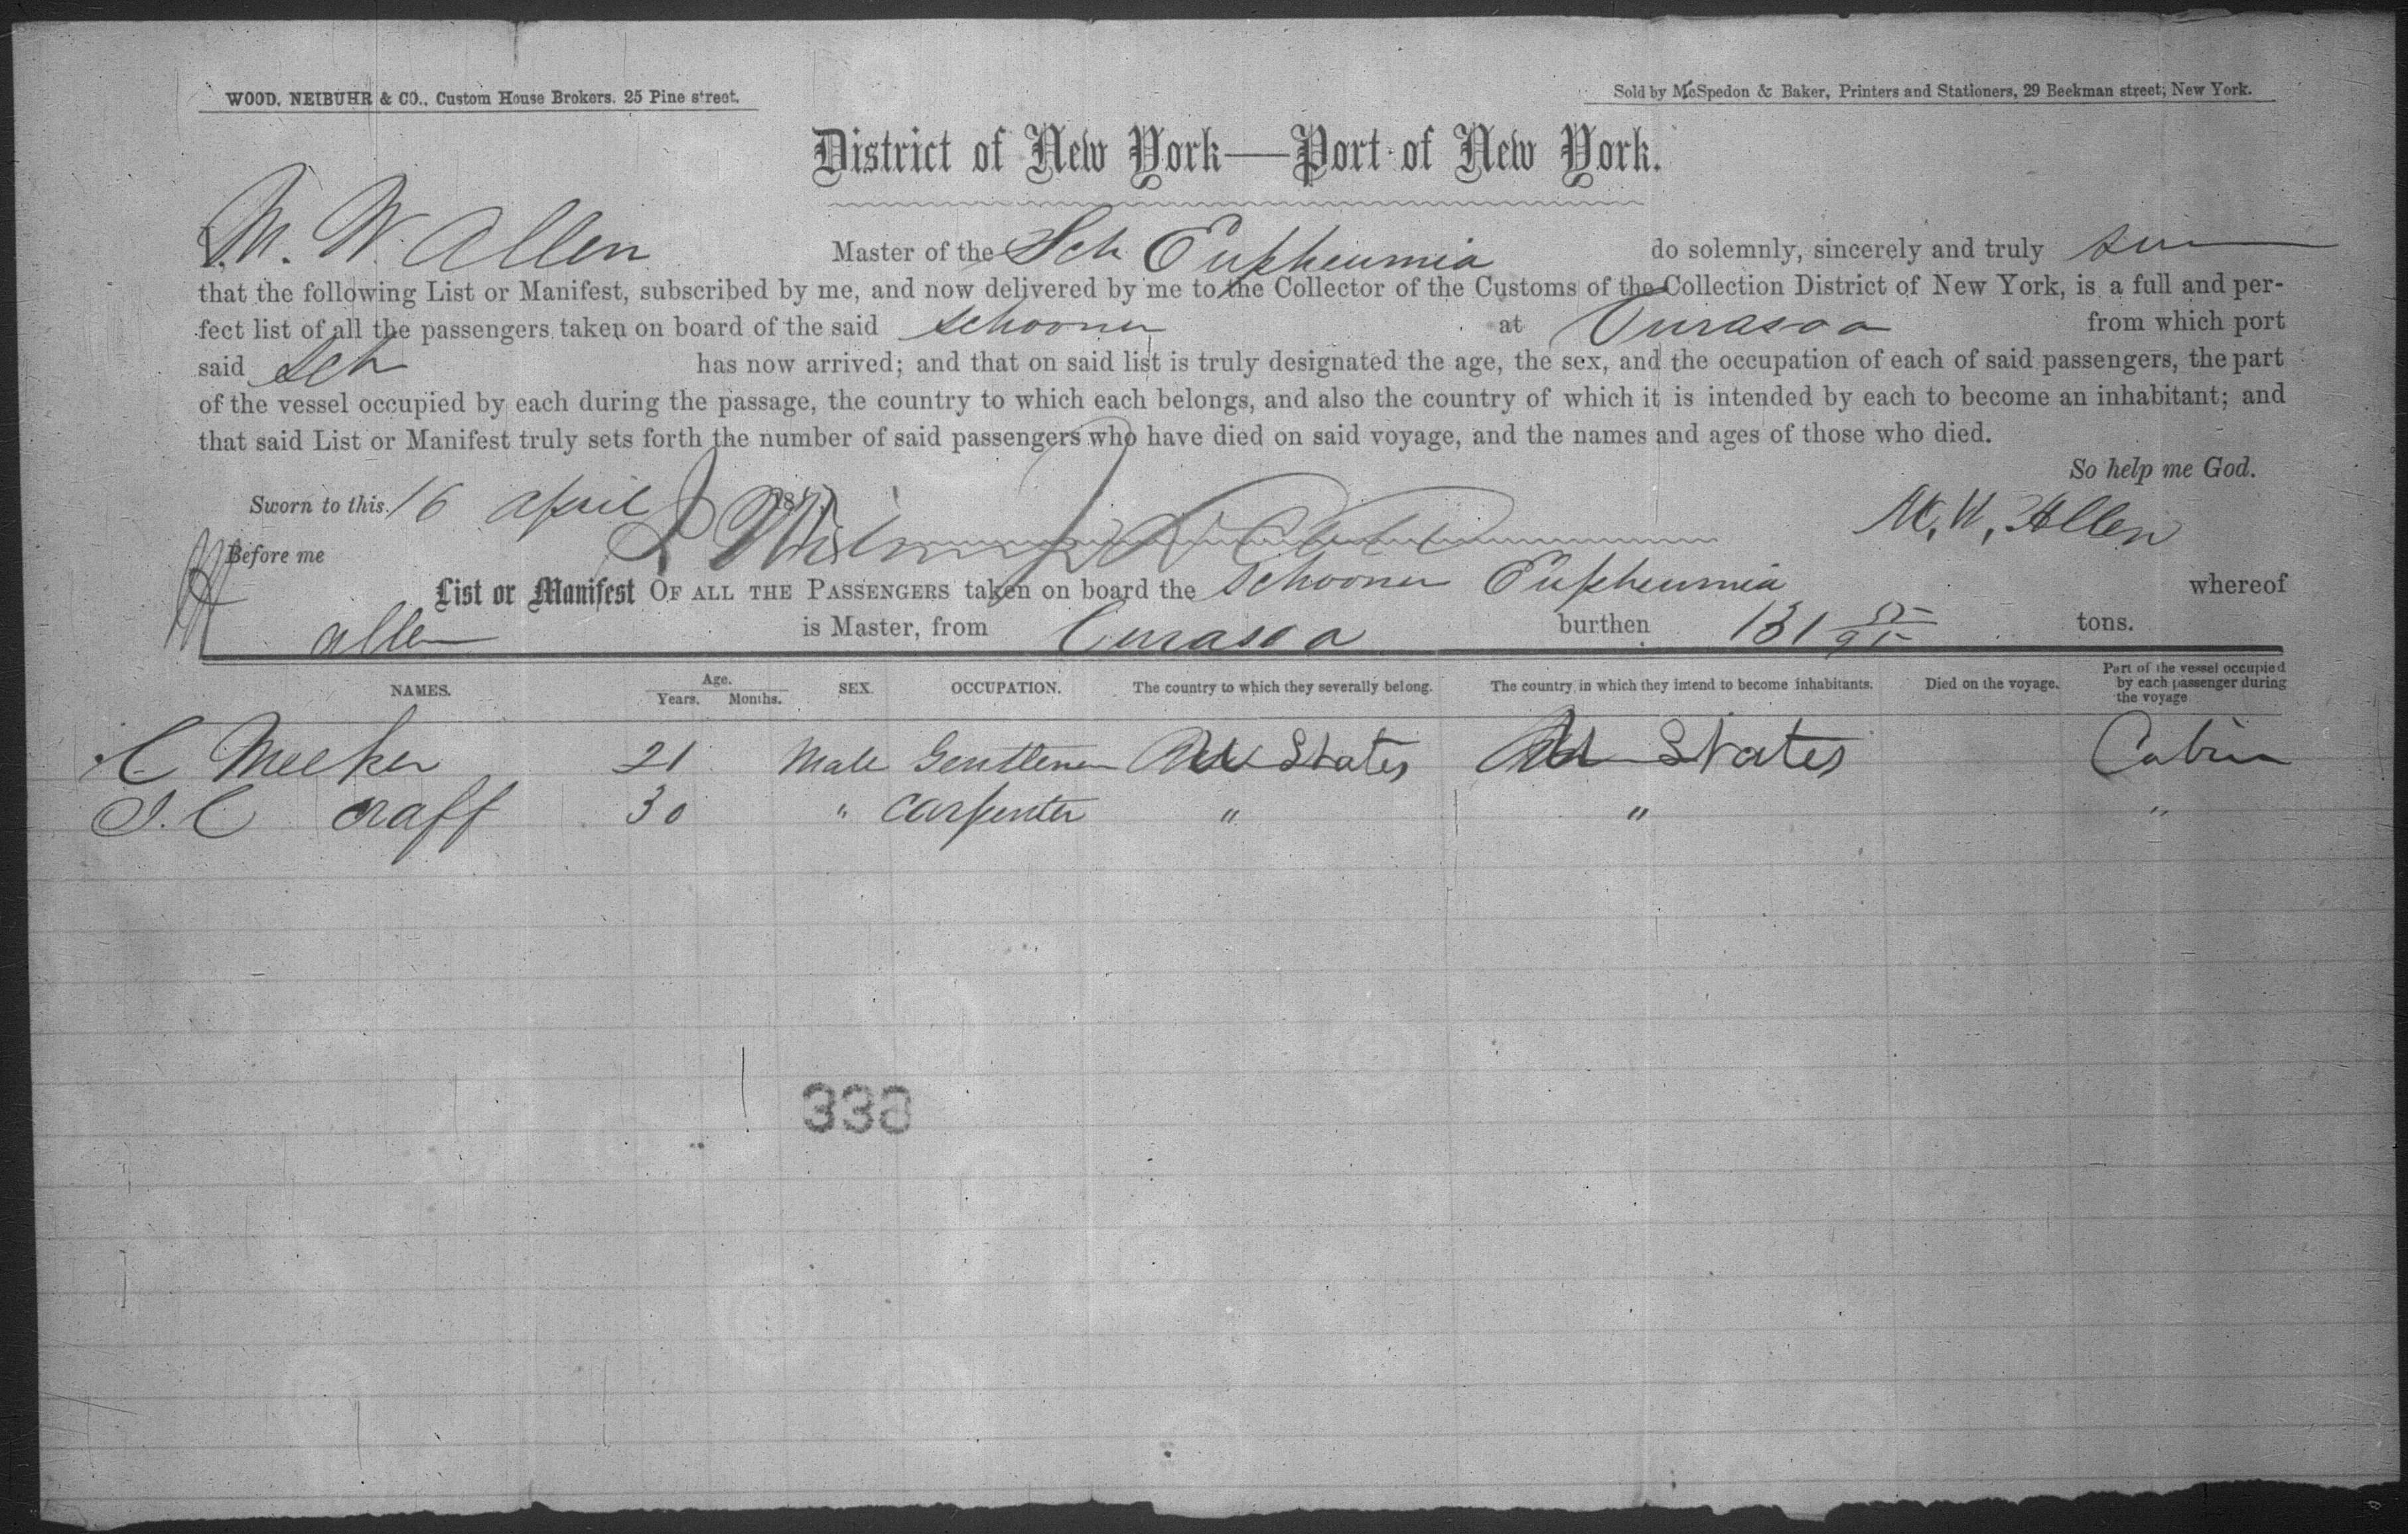 WOOD, NEIBUHR & CO., Custom House Brokers. 25 Pine street.
Sold by McSpedon & Baker, Printers and Stationers, 29 Beekman street, New York.
District of New York—Port of New York.
I, M. W. Allen Master of the Sch Eupheumia do solemnly, sincerely and truly
that the following List or Manifest, subscribed by me, and now delivered by me to the Collector of the Customs of the Collection District of New York, is a full and per-
fect list of all the passengers taken on board of the said schooner at Curasoa from which port
said Sch has now arrived; and that on said list is truly designated the age, the sex, and the occupation of each of said passengers, the part
of the vessel occupied by each during the passage, the country to which each belongs, and also the country of which it is intended by each to become an inhabitant; and
that said List or Manifest truly sets forth the number of said passengers who have died on said voyage, and the names and ages of those who died.
So help me God.
Sworn to this 16 april 18
M. W. Allen
Before me
List or Manifest OF ALL THE PASSENGERS taken on board the Schooner Eupheumia whereof
Allen is Master, from Curasoa burthen 131 tons.
NAMES. Age. Years. Months. SEX. OCCUPATION. The country to which they severally belong. The country in which they intend to become inhabitants. Died on the voyage. Part of the vessel occupied by each passenger during the voyage
C Meeker 21 Male Gentlemen States States Cabin
J. C Craff 30 " Carpenter " " "
338